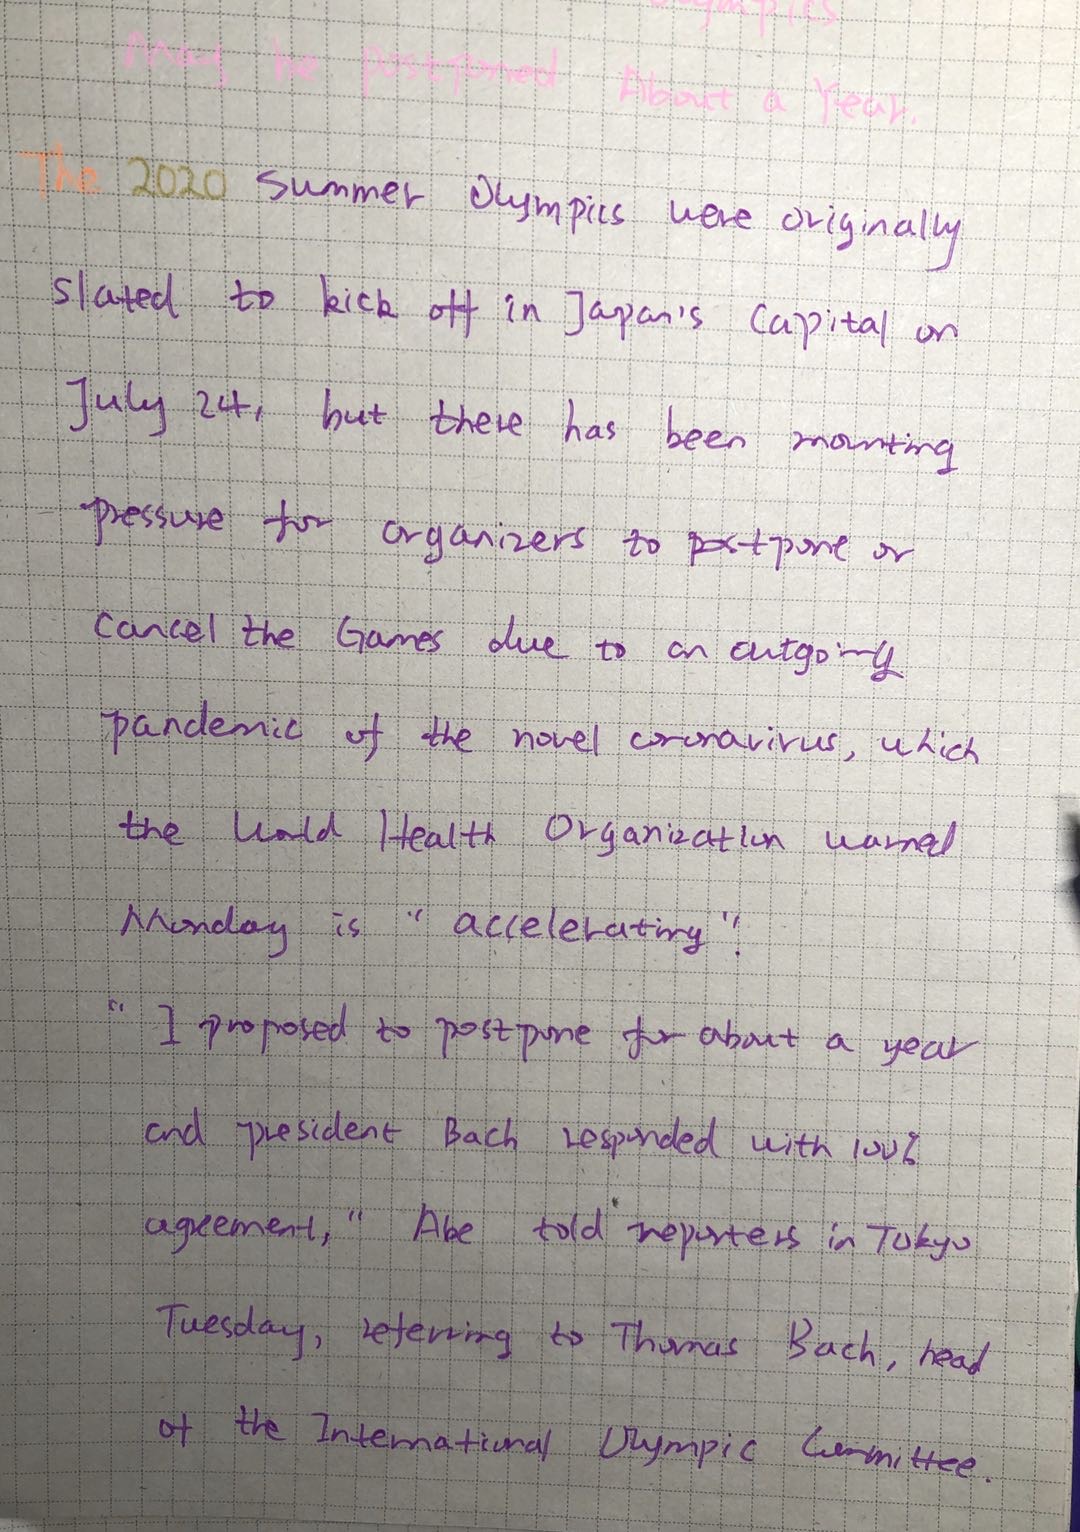 Olympics
May be postponed About a Year.
The 2020 Summer Olympics were originally
slated to kick off in Japan's Capital on
July 24, but there has been mounting
pressure for organizers to postpone or
Cancel the Games due to an outgoing
pandemic of the novel coronavirus, which
the World Health Organization warned
Monday is "accelerating".
"I proposed to postpone for about a year
and president Bach responded with 100%
agreement," Abe told reporters in Tokyo
Tuesday, referring to Thomas Bach, head
of the International Olympic Committee.